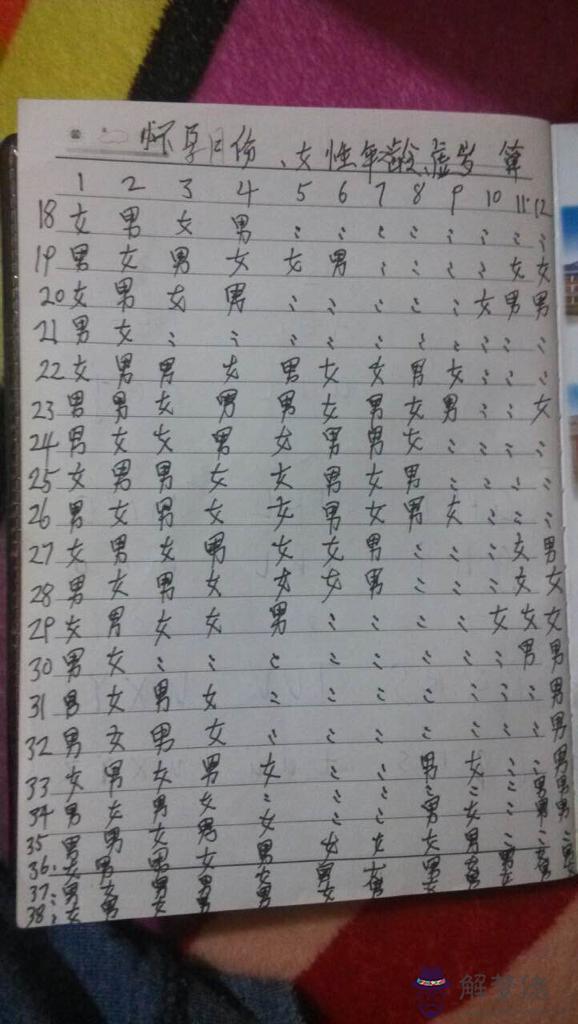 怀孕月份、女性年龄虚岁 算
1 2 3 4 5 6 7 8 9 10 11 12
18 女 男 女 男 ： ： ： ： ： ： ： ：
19 男 女 男 女 女 男 ： ： ： ： 女 女
20 女 男 女 男 ： ： ： ： ： 女 男 男
21 男 女 ： ： ： ： ： ： ： ： ： ：
22 女 男 男 女 男 女 女 男 女 ： ： ：
23 男 男 女 男 男 女 男 女 男 ： ： 女
24 男 女 女 男 女 男 男 女 ： ： ： ：
25 女 男 男 女 女 男 女 男 ： ： ： ：
26 男 女 男 女 女 男 女 男 女 ： ： ：
27 女 男 女 男 女 女 男 ： ： ： 女 男
28 男 女 男 女 女 女 男 ： ： ： 女 女
29 女 男 女 女 男 ： ： ： ： 女 女 女
30 男 女 ： ： ： ： ： ： ： ： 男 男
31 男 女 男 女 ： ： ： ： ： ： ： 男
32 男 女 男 女 ： ： ： ： ： ： ： 男
33 女 男 女 男 女 ： ： 男 女 ： ： 男
34 男 女 男 女 ： ： ： ： ： ： 男 男
35 男 男 女 男 女 ： ： 男 女 ：
36 女 男 男 女 男 女 女 女 男 ：
37 男 女 男 男 女 男 女 男
38 女 男 女 男 男 女 男 女
解梦佬